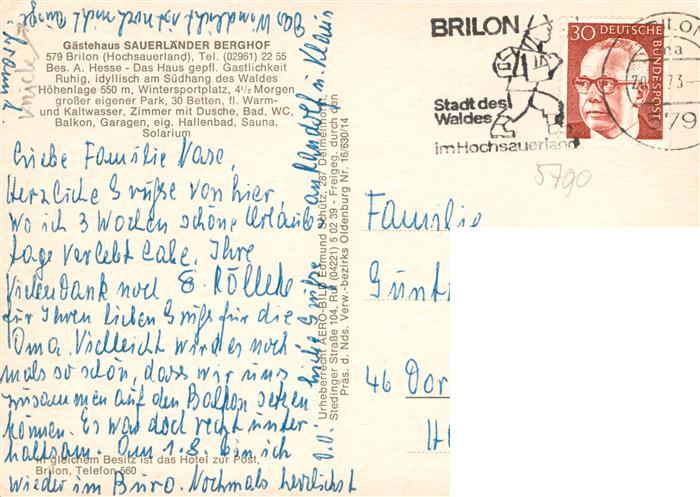 Gästehaus SAUERLÄNDER BERGHOF
579 Brilon (Hochsauerland), Tel. (02961) 22 55
Bes. A. Hesse - Das Haus gepfl. Gastlichkeit
Ruhig, idyllisch am Südhang des Waldes
Höhenlage 550 m, Wintersportplatz, 4½ Morgen
großer eigener Park, 30 Betten, fl. Warm-
und Kaltwasser, Zimmer mit Dusche, Bad, WC,
Balkon, Garagen, eig. Hallenbad, Sauna,
Solarium
Liebe Familie Vase,
Herzliche Grüße von hier,
wo ich 3 Wochen schöne Urlaubs
tage verlebt habe, Ihre
E. Rölleke
Vielen Dank noch
für Ihren lieben Gruß für die
Oma. Vielleicht wird es noch
mals so schön, dass wir uns
zusammen auf den Balkon setzen
können. Es war doch recht unter
haltsam. Am 1.8. bin ich
wieder im Büro. Nochmals herzlichst
In gleichem Besitz ist das Hotel zur Post,
Brilon, Telefon 560
Das Wandlicht ist noch nicht
Grüße an Randolf u. Klaus
Urheberrecht AERO-BILD Edmund Schütz, 287 Delmenhorst,
Stedinger Straße 104, Ruf (04221) 5 02 39 - Freigeg. durch den
Präs. d. Nds. Verw.-bezirks Oldenburg Nr. 16/630/14
BRILON
Stadt des
Waldes
im Hochsauerland
30 DEUTSCHE
BUNDESPOST
BRILON
73
579
5790
Familie
Günt
46 Dor